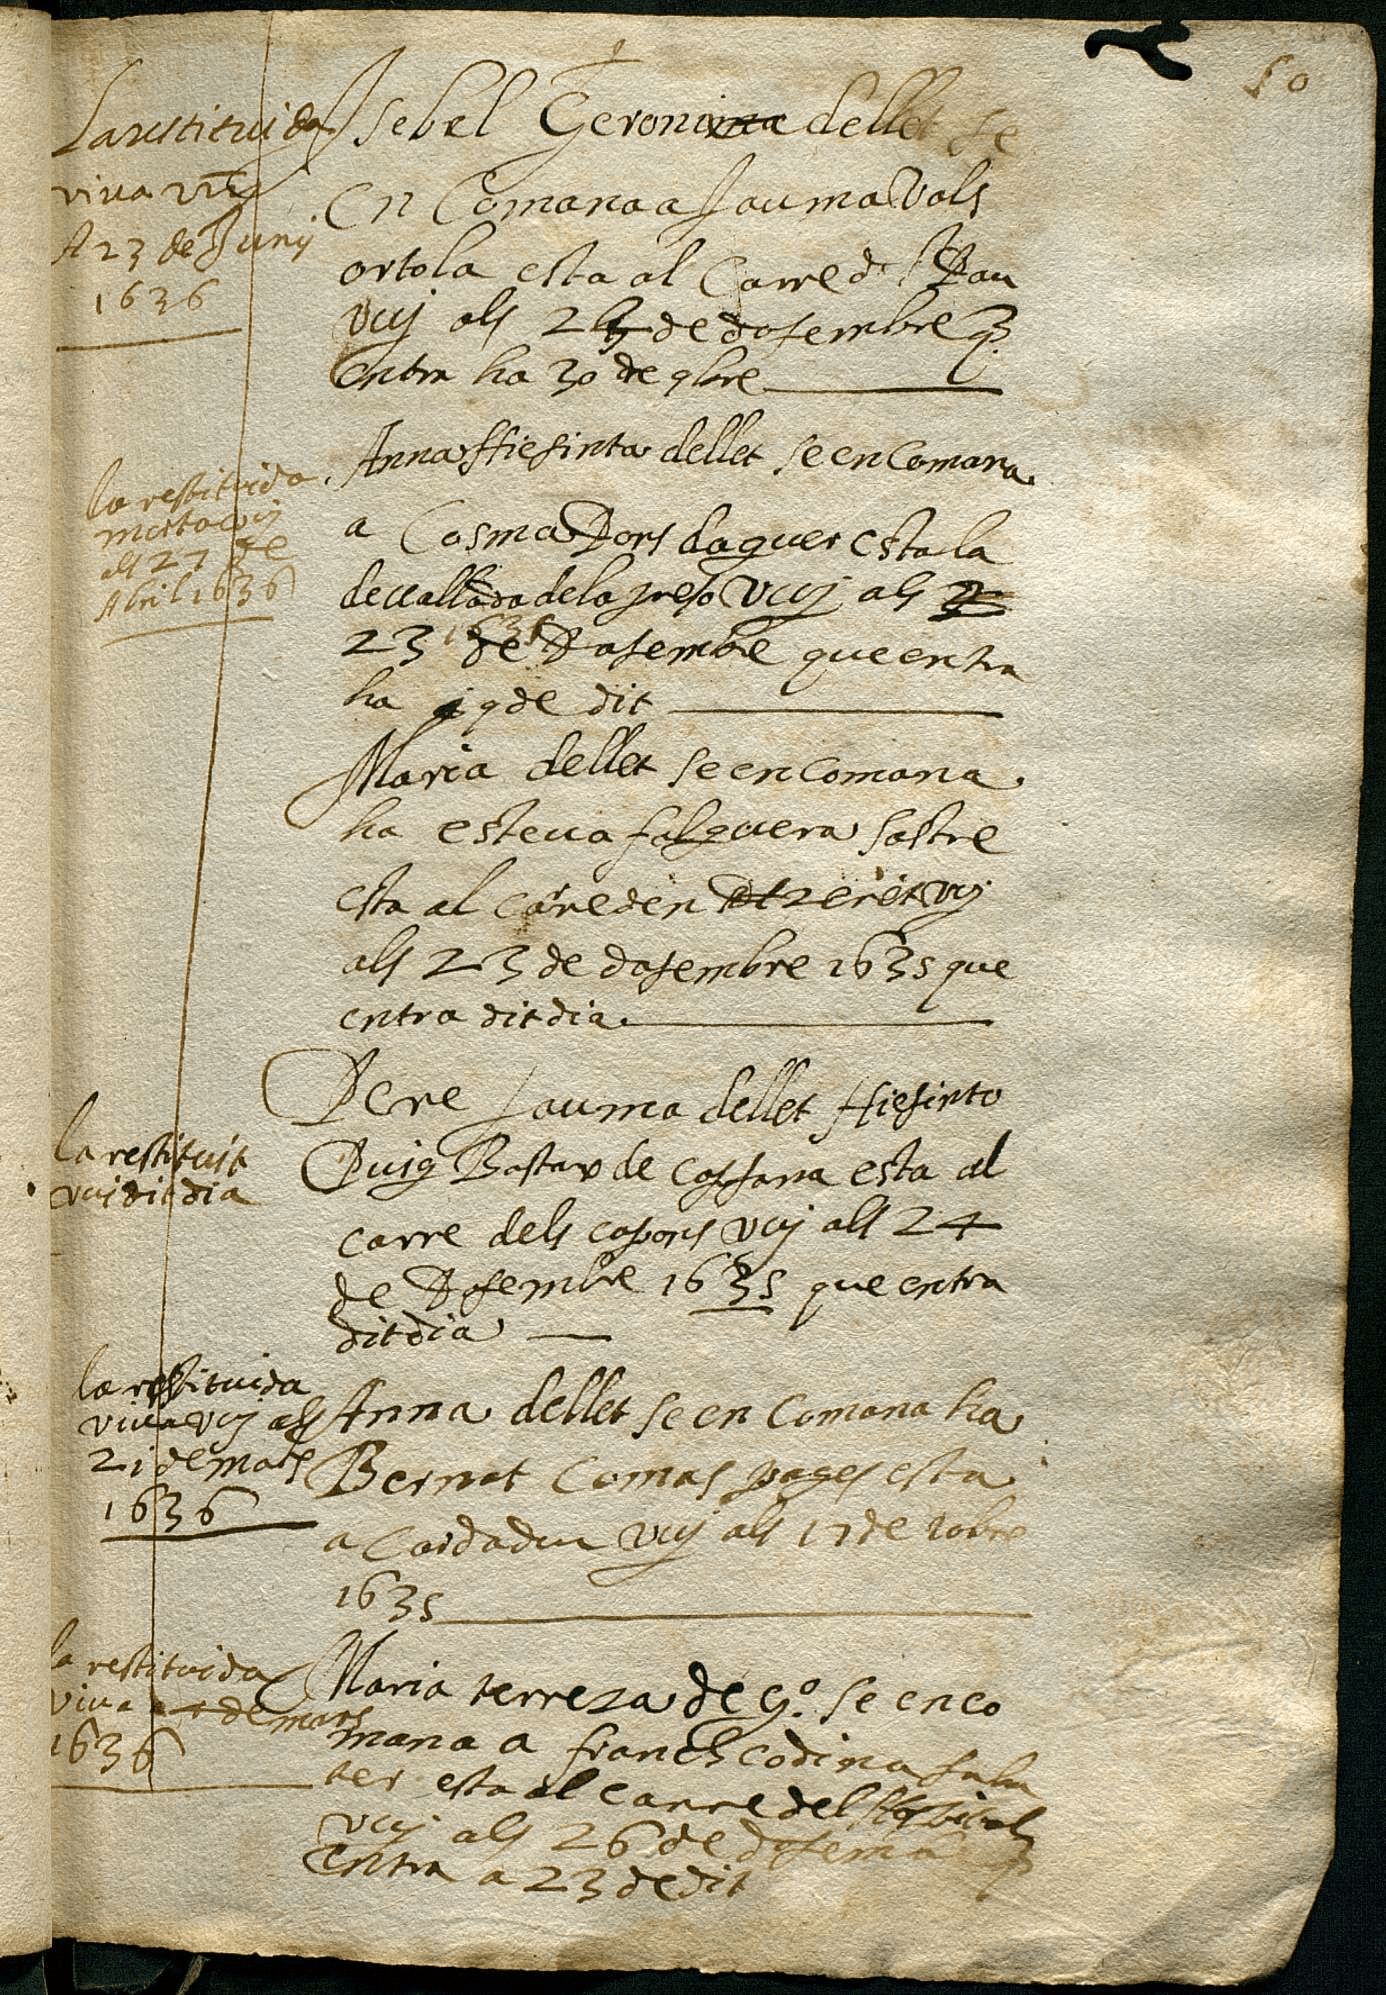 50
La restituida
viva vuy
A 23 de Juny
1636
Isebel Geronima dellet se
en Comana a Jauma Vals
ortola esta al Carre d St Pau
vuy als 23 de dasembre q
entra ha 30 de
la restituida
morta vuy
als 27 de
Abril 1636
Anna Hiesinta dellet se en Comana
a Cosma Pons daguer esta la
devallada de la preso vuy als
23 de Dasembre que entra
1635
ha 19 de dit
Maria dellet se en Comana
ha esteva falguera sastre
esta al carre den vuy
als 23 de dasembre 1635 que
entra dit dia
la restituit
vuy dit dia
Pere Jauma dellet Hiesinto
Puig Bastax de Capsana esta al
carre dels capons vuy als 24
de Dasembre 1635 que entra
dit dia
la restituida
viva vuy als
21 de mars
1636
Anna dellet se en Comana ha
Bernat Comas pages esta
a Cardadeu vuy als 17 de 10bre
1635
la restituida
viva a 4 de mars
1636
Maria terreza de go. se enco
mana a franch codina saba
ter esta al carre del Hospital
vuy als 26 de dasemb q
entra a 23 de dit